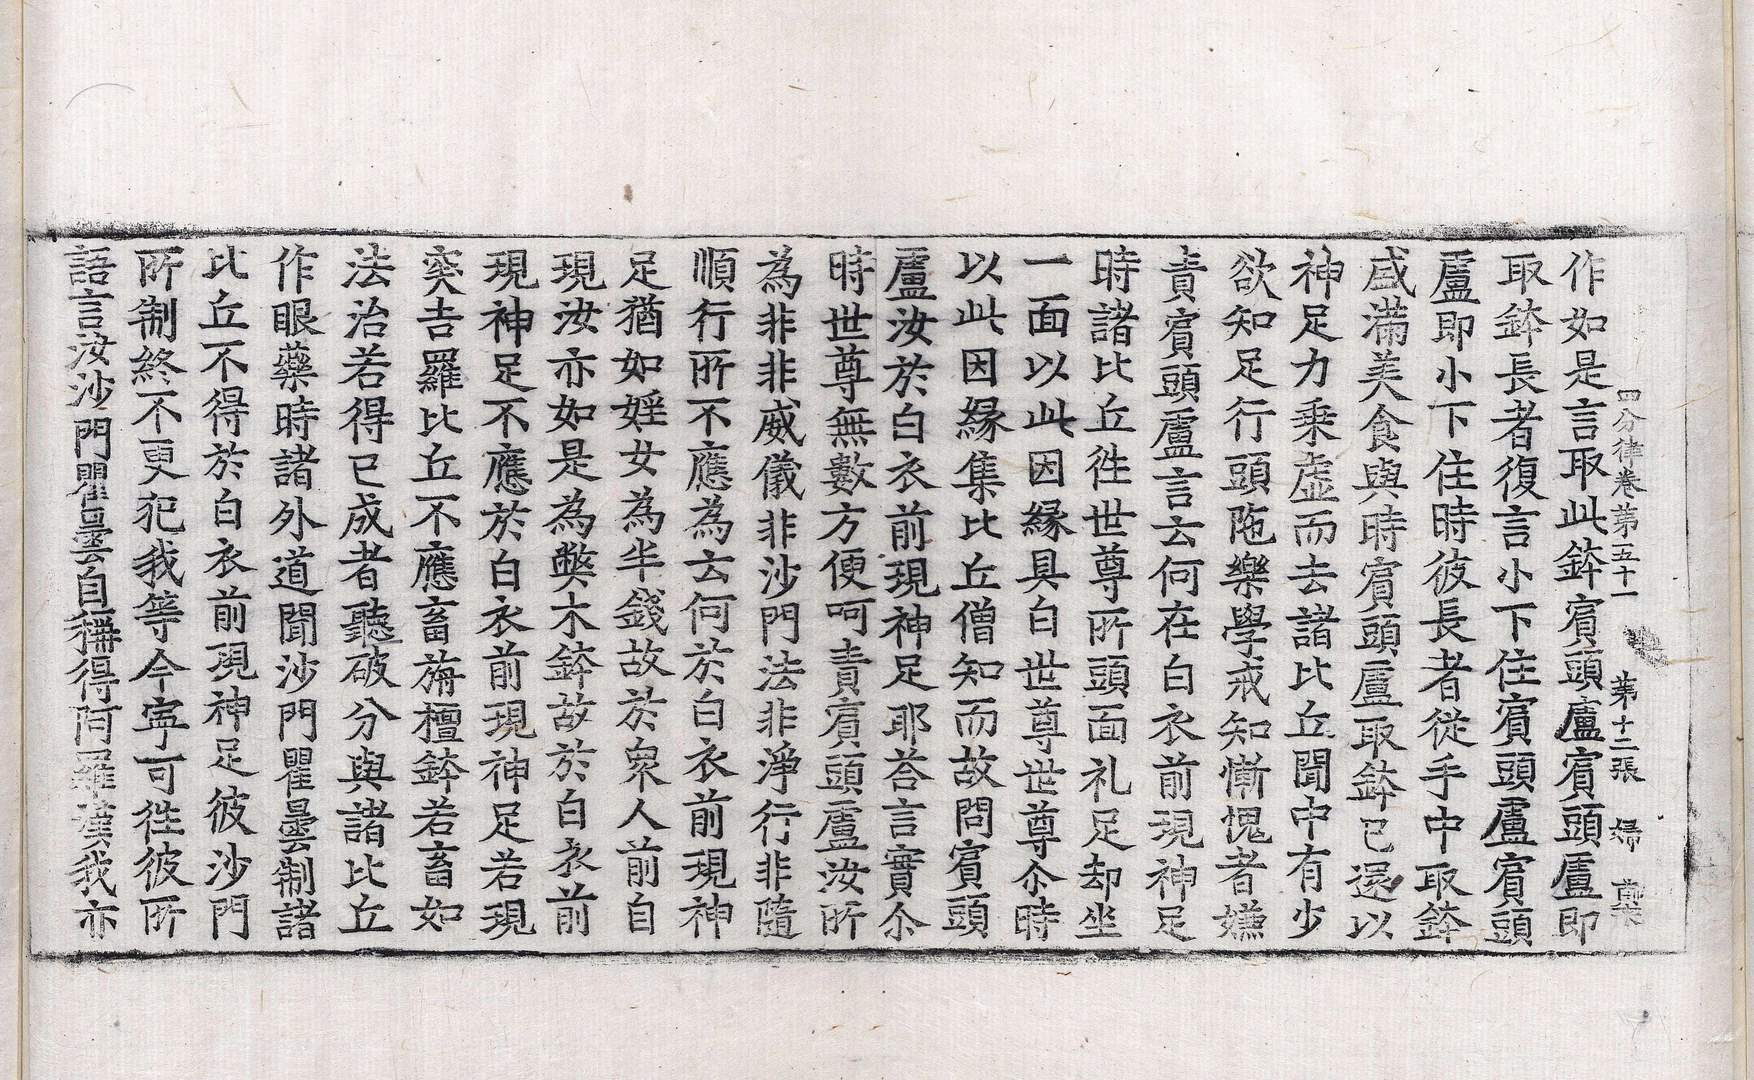 四分律卷第五十一 第十二張 婦
作如是言取此鉢賓頭盧賓頭盧即
取鉢長者復言小下住賓頭盧賓頭
盧即小下住時彼長者從手中取鉢
盛滿美食與時賓頭盧取鉢已還以
神足力乗虛而去諸比丘聞中有少
欲知足行頭陁樂學戒知慚愧者嫌
責賓頭盧言云何在白衣前現神足
時諸比丘徃世尊所頭面礼足却坐
一面以此因緣具白世尊世尊尒時
以此因緣集比丘僧知而故問賓頭
盧汝於白衣前現神足耶荅言實尒
時世尊無數方便呵責賓頭盧汝所
為非非威儀非沙門法非淨行非隨
順行所不應為云何於白衣前現神
足猶如婬女為半錢故於衆人前自
現汝亦如是為弊木鉢故於白衣前
現神足不應於白衣前現神足若現
突吉羅比丘不應畜旃檀鉢若畜如
法治若得已成者聽破分與諸比丘
作眼藥時諸外道聞沙門瞿曇制諸
比丘不得於白衣前現神足彼沙門
所制終不更犯我等今寜可徃彼所
語言汝沙門瞿曇自稱得阿羅漢我亦